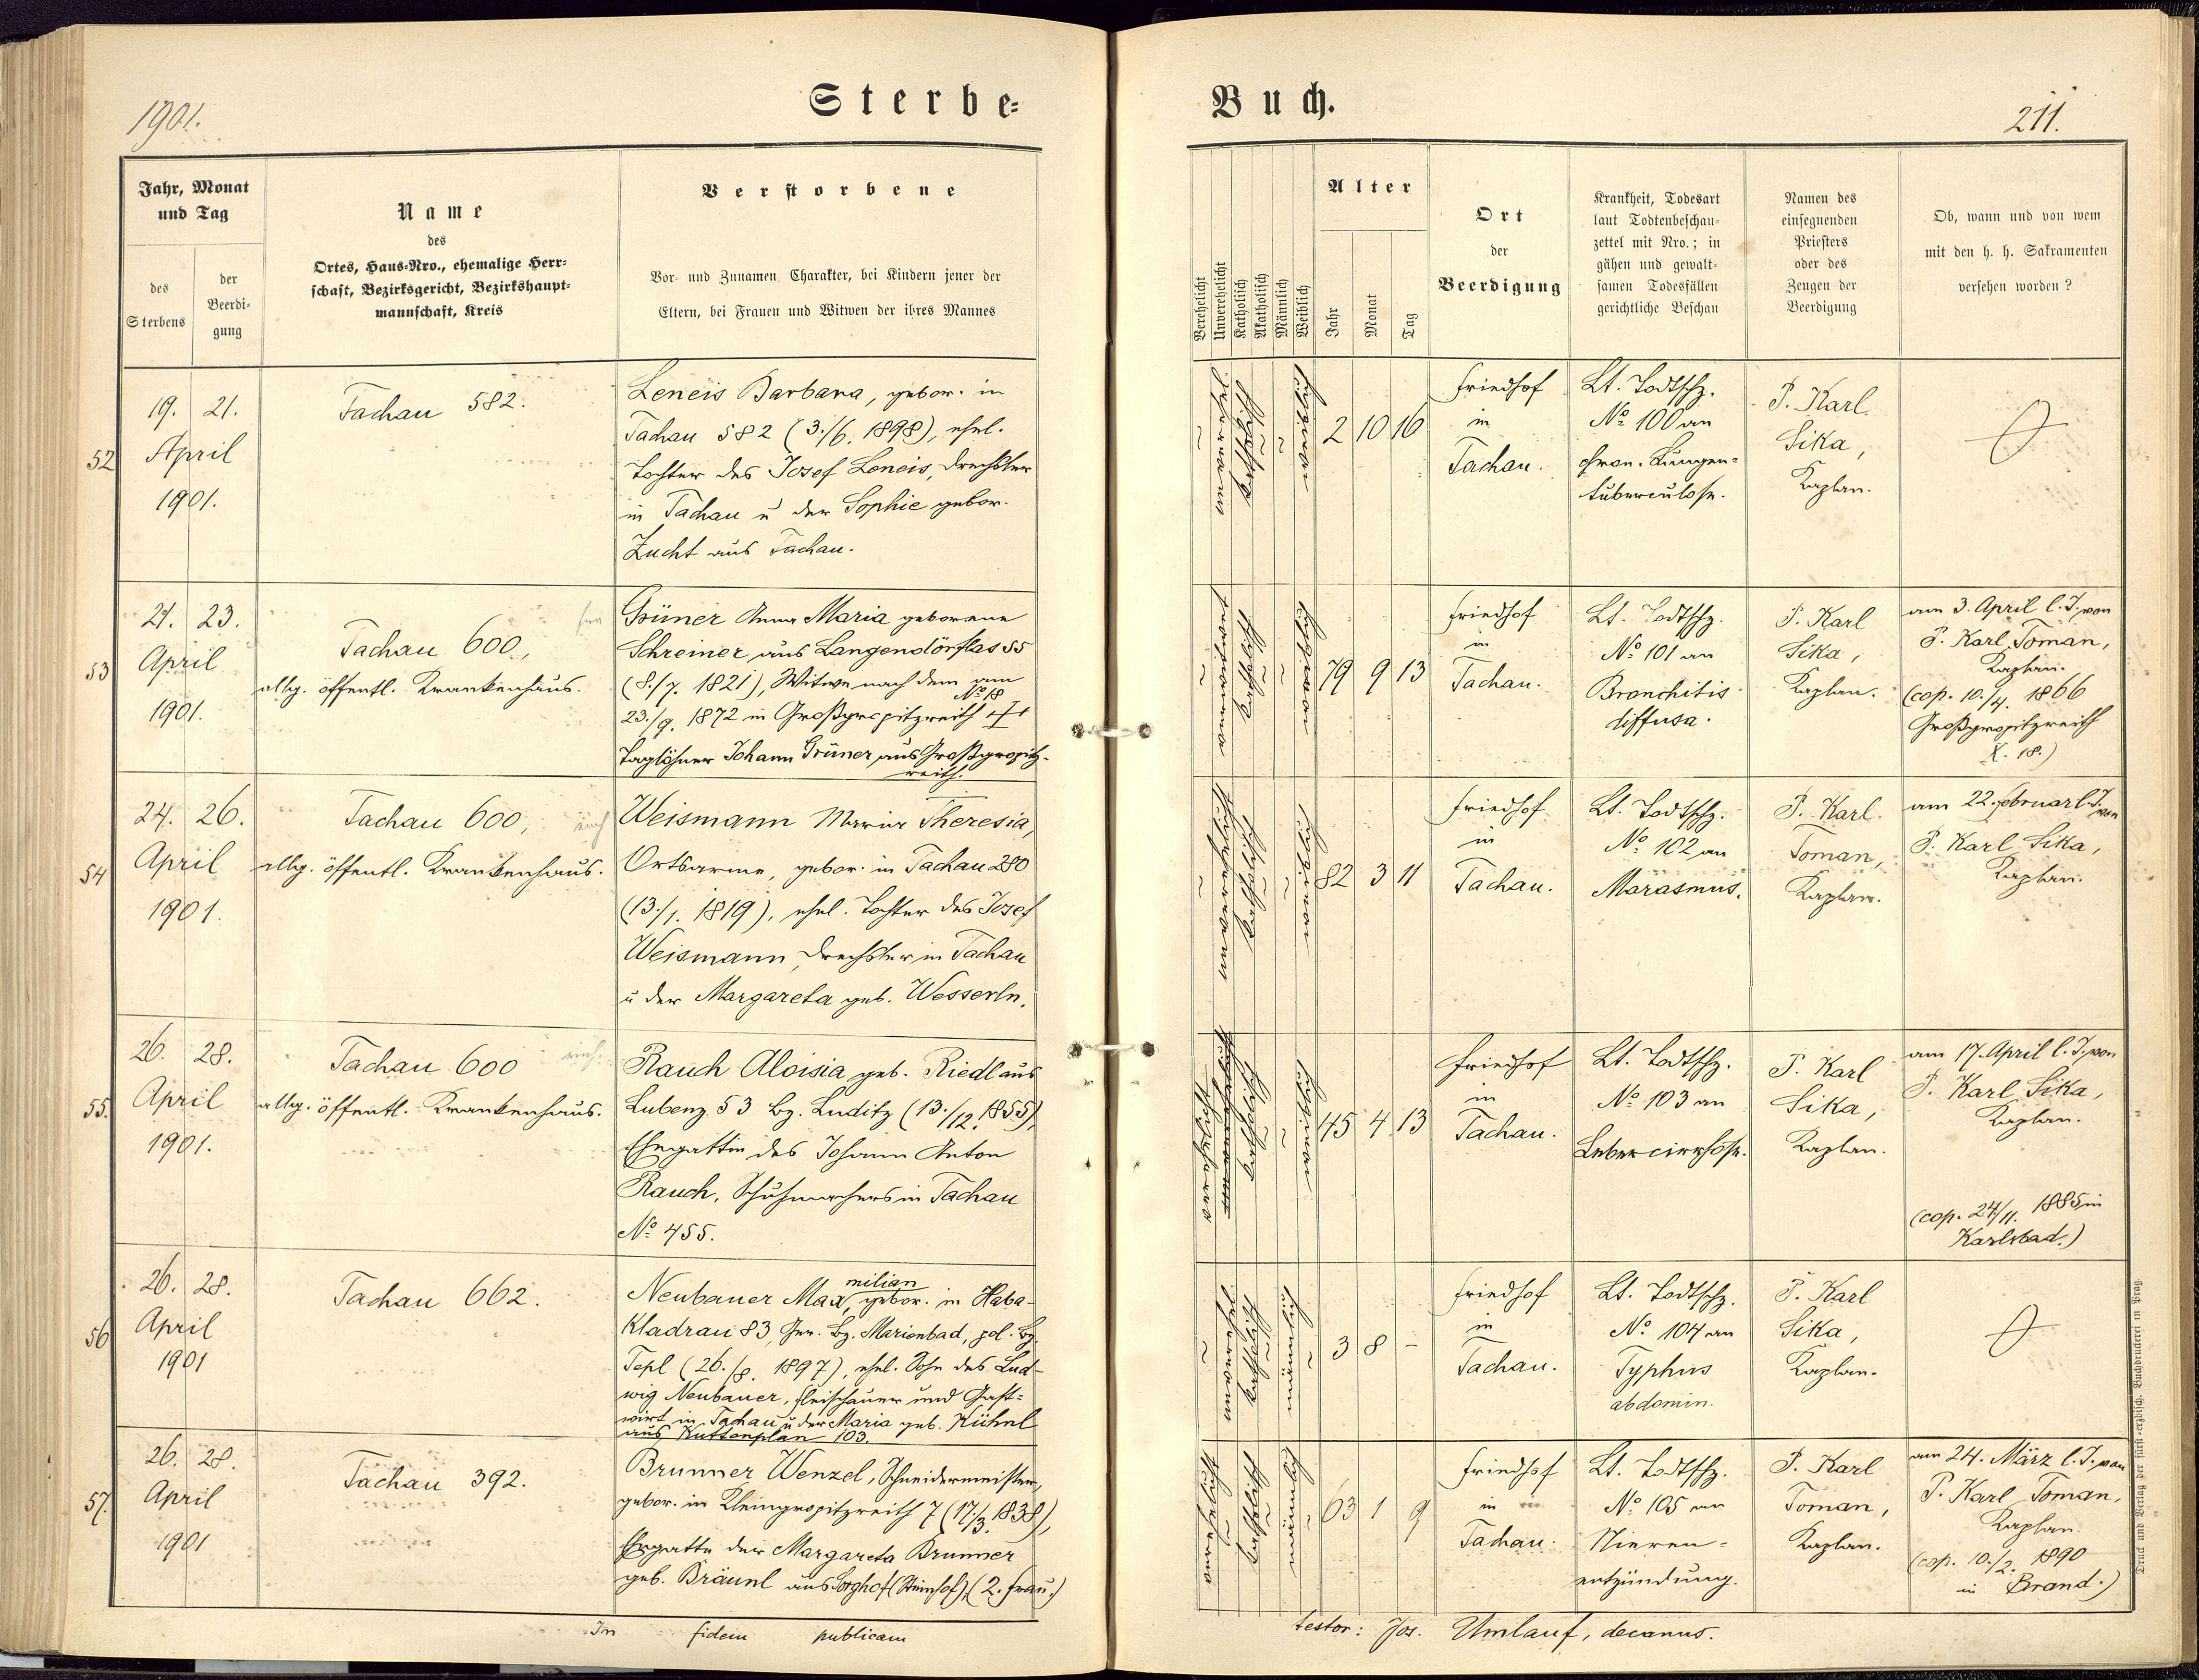 1901.
Sterbe-
Buch.
211.
Jahr, Monat
und Tag
des
Sterbens
der
Beerdi-
gung
Name
des
Ortes, Haus-Nro., ehemalige Herr-
schaft, Bezirksgericht, Bezirkshaupt-
mannschaft, Kreis
Verstorbene
Vor- und Zunamen, Charakter, bei Kindern jener der
Eltern, bei Frauen und Witwen der ihres Mannes
Verehelicht
Unverehelicht
Katholisch
Akatholisch
Männlich
Weiblich
Alter
Jahr
Monat
Tag
Ort
der
Beerdigung
Krankheit, Todesart
laut Todtenbeschau-
zettel mit Nro.; in
gähen und gewalt-
samen Todesfällen
gerichtliche Beschau
Namen des
einsegnenden
Priesters
oder des
Zeugen der
Beerdigung
Ob, wann und von wem
mit den h. h. Sakramenten
versehen worden?
52
19. 21.
April
1901.
Tachau 582.
Leneis Barbara, gebor. in
Tachau 582 (3./6. 1898), ehel.
Tochter des Josef Leneis, Drechsler
in Tachau u der Sophie gebor.
Zucht aus Tachau.
~
unverehelicht
katholisch
~
~
weiblich
2 10 16
Friedhof
in
Tachau.
Lt. Todtschz.
No. 100 an
chron. Lungen-
tuberculose.
P. Karl
Sika,
Kaplan.
53
21. 23.
April
1901.
Tachau 600,
allg. öffentl. Krankenhaus.
Grüner Anna Maria geborene
Schreiner aus Langendörflas 55
(8./7. 1821), Witwe nach dem am
23./9. 1872 in Großgropitzreith No 18 †
Taglöhner Johann Grüner aus Großgropitz-
reith.
~
verwitwet
katholisch
~
~
weiblich
79 9 13
Friedhof
in
Tachau.
Lt. Todtschz.
No. 101 an
Bronchitis
diffusa.
P. Karl
Sika,
Kaplan.
am 3. April l. J. von
P. Karl Toman,
Kaplan.
(cop. 10./4. 1866
Großgropitzreith
18.)
54
24. 26.
April
1901.
Tachau 600,
allg. öffentl. Krankenhaus.
Weismann Maria Theresia,
Ortsarme, gebor. in Tachau 280
(13./1. 1819), ehel. Tochter des Josef
Weismann, Drechsler in Tachau
u der Margareta geb. Wesserln.
~
unverehelicht
katholisch
~
~
weiblich
82 3 11
Friedhof
in
Tachau.
Lt. Todtschz.
No. 102 an
Marasmus.
P. Karl
Toman,
Kaplan.
am 22. Februar l. J. von
P. Karl Sika,
Kaplan.
55.
26. 28.
April
1901.
Tachau 600
allg. öffentl. Krankenhaus.
Rauch Aloisia geb. Riedl aus
Lubenz 53 Bz. Luditz (13./12. 1855),
Ehegattin des Johann Anton
Rauch, Schuhmachers in Tachau
No. 455.
verehelicht
katholisch
~
~
weiblich
45 4 13
Friedhof
in
Tachau.
Lt. Todtschz.
No. 103 an
Lebercirrhose.
P. Karl
Sika,
Kaplan.
am 17. April l. J. von
P. Karl Sika,
Kaplan.
(cop. 24/11. 1885 in
Karlsbad.)
56
26. 28.
April
1901
Tachau 662.
Neubauer Maximilian, gebor. in Haba-
Kladrau 83, Ger. Bz. Marienbad, pol. Bz.
Tepl (26./8. 1897), ehel. Sohn des Lud-
wig Neubauer, Fleischauer und Gast-
wirt in Tachau u der Maria geb. Kühnl
aus Kuttenplan 103.
~
unverehelicht
katholisch
~
männlich
~
3 8 -
Friedhof
in
Tachau.
Lt. Todtschz.
No. 104 an
Typhus
abdomin.
P. Karl
Sika,
Kaplan.
57.
26. 28.
April
1901
Tachau 392.
Brunner Wenzel, Schneidermeister,
gebor. in Kleingropitzreith 7 (17./3. 1838),
Ehegatte der Margareta Brunner
geb. Bräunl aus Sorghof (Steinhof), (2. Frau.)
verehelicht
~
katholisch
~
männlich
~
63 1 9
Friedhof
in
Tachau.
Lt. Todtschz.
No. 105 an
Nieren-
entzündung.
P. Karl
Toman,
Kaplan.
am 24. März l. J. von
P. Karl Toman,
Kaplan.
(cop. 10./2. 1890
in Brand.)
In fidem publicam
testor: Jos. Umlauf, decanus.
Druck und Verlag der fürst-erzbisch. Buchdruckerei in Prag.